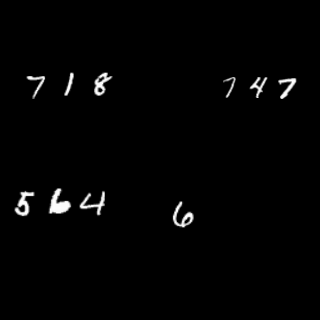 718 747
564 6